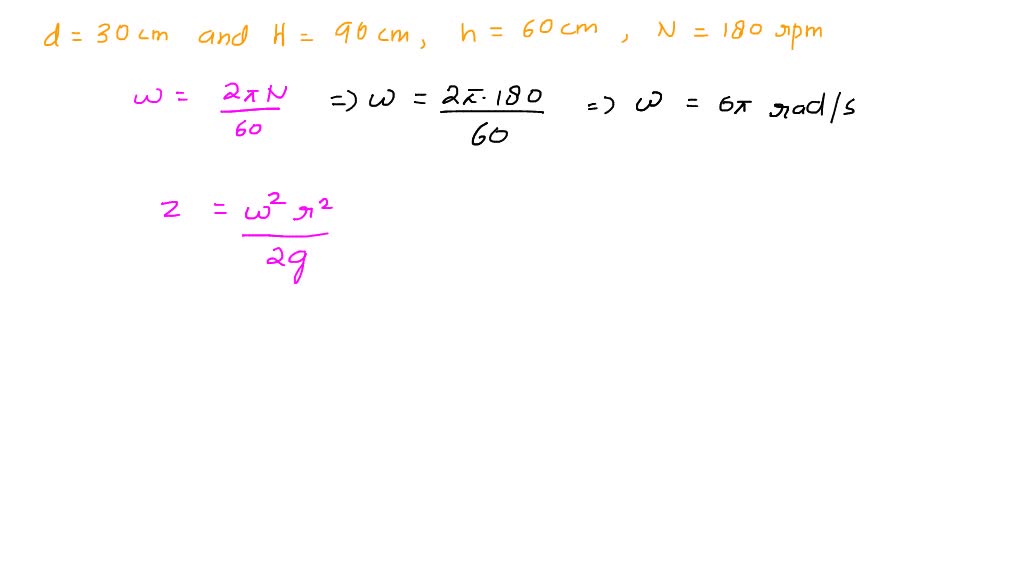 d = 30 cm and H = 90 cm, h = 60 cm, N = 180 rpm
ω = 2πN/60 => ω = 2π·180/60 => ω = 6π rad/s
z = ω² r²/2g